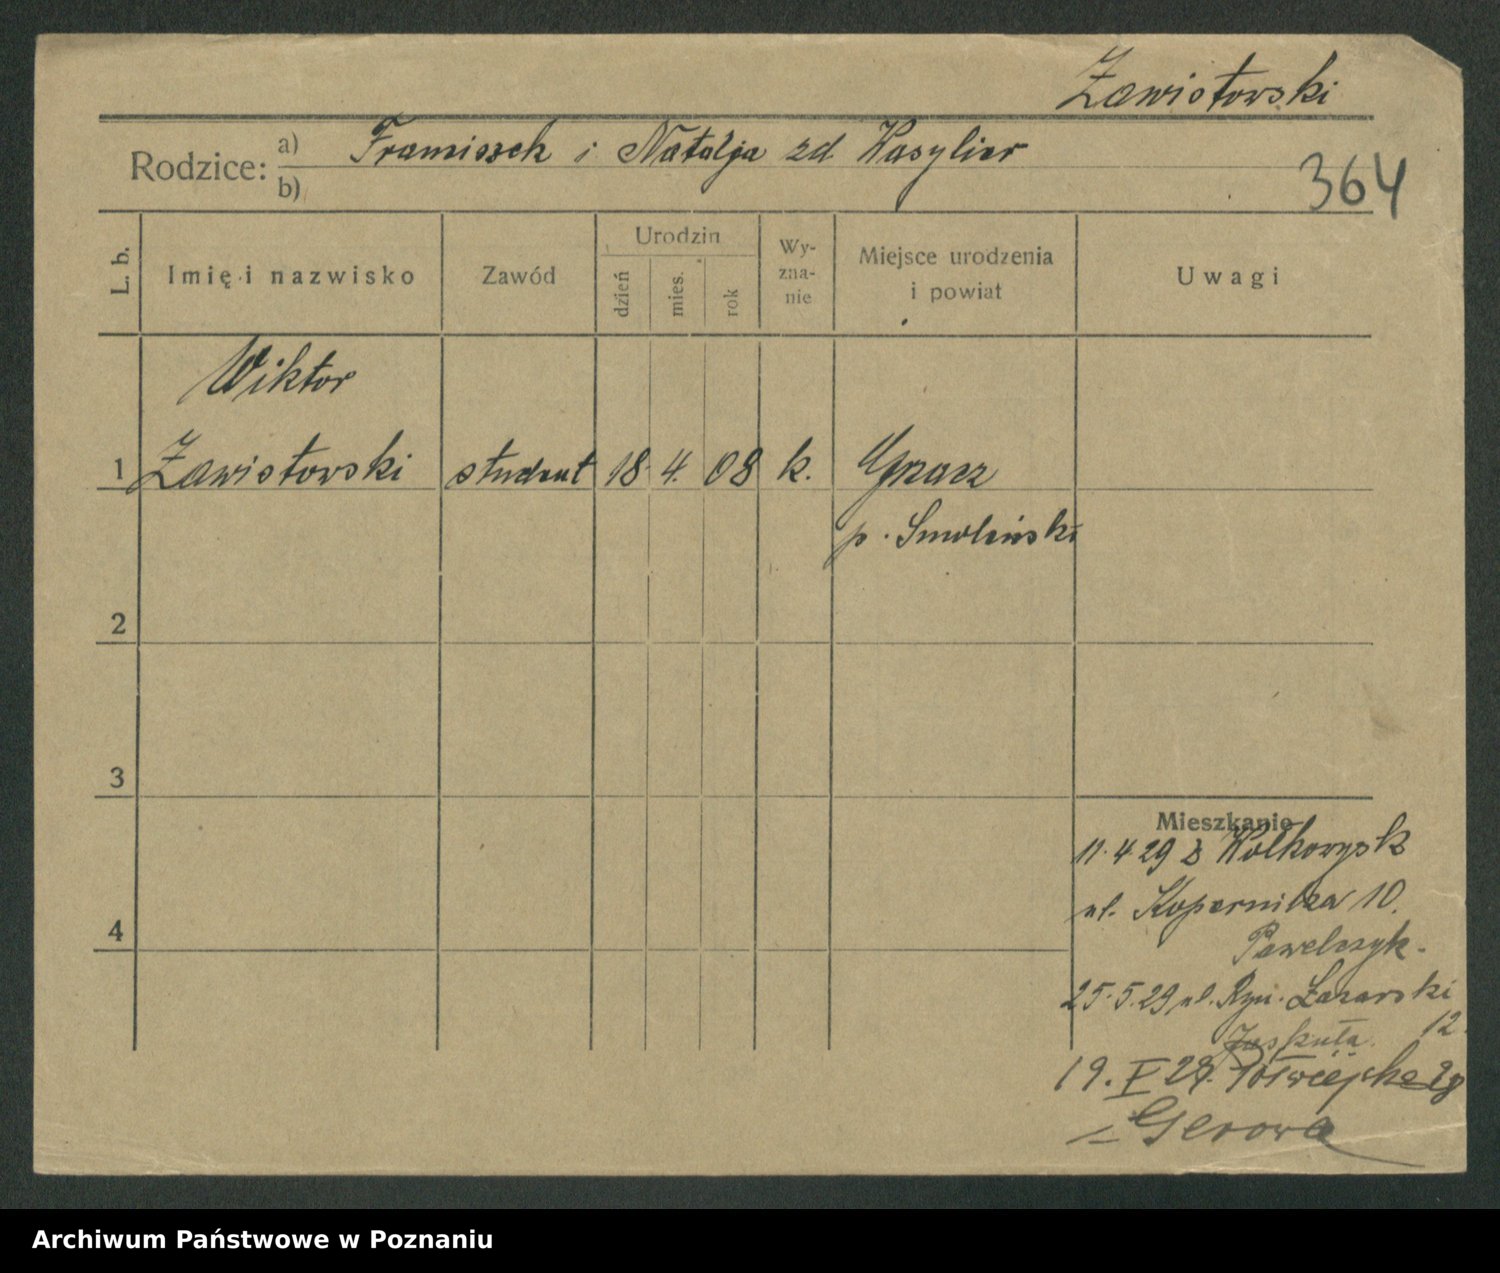 Zawistowski
Rodzice: a) Franciszek i Natalja zd Wasylier
b)
364
L. b.
Imię i nazwisko
Zawód
Urodzin
dzień
mies.
rok
Wy-
zna-
nie
Miejsce urodzenia
i powiat
Uwagi
Wiktor
1 Zawistowski student 18. 4. 08 k. Gzacz
p. Smoleński
2
3
Mieszkanie
11.4 29 z Wołkowysk
ul. Kopernika 10.
4
Pawelczyk.
25.5.29 ul. Ryn. Łazarski
12.
Jaskuła
19. X 29. Półwiejska 28
Gerowa
Archiwum Państwowe w Poznaniu